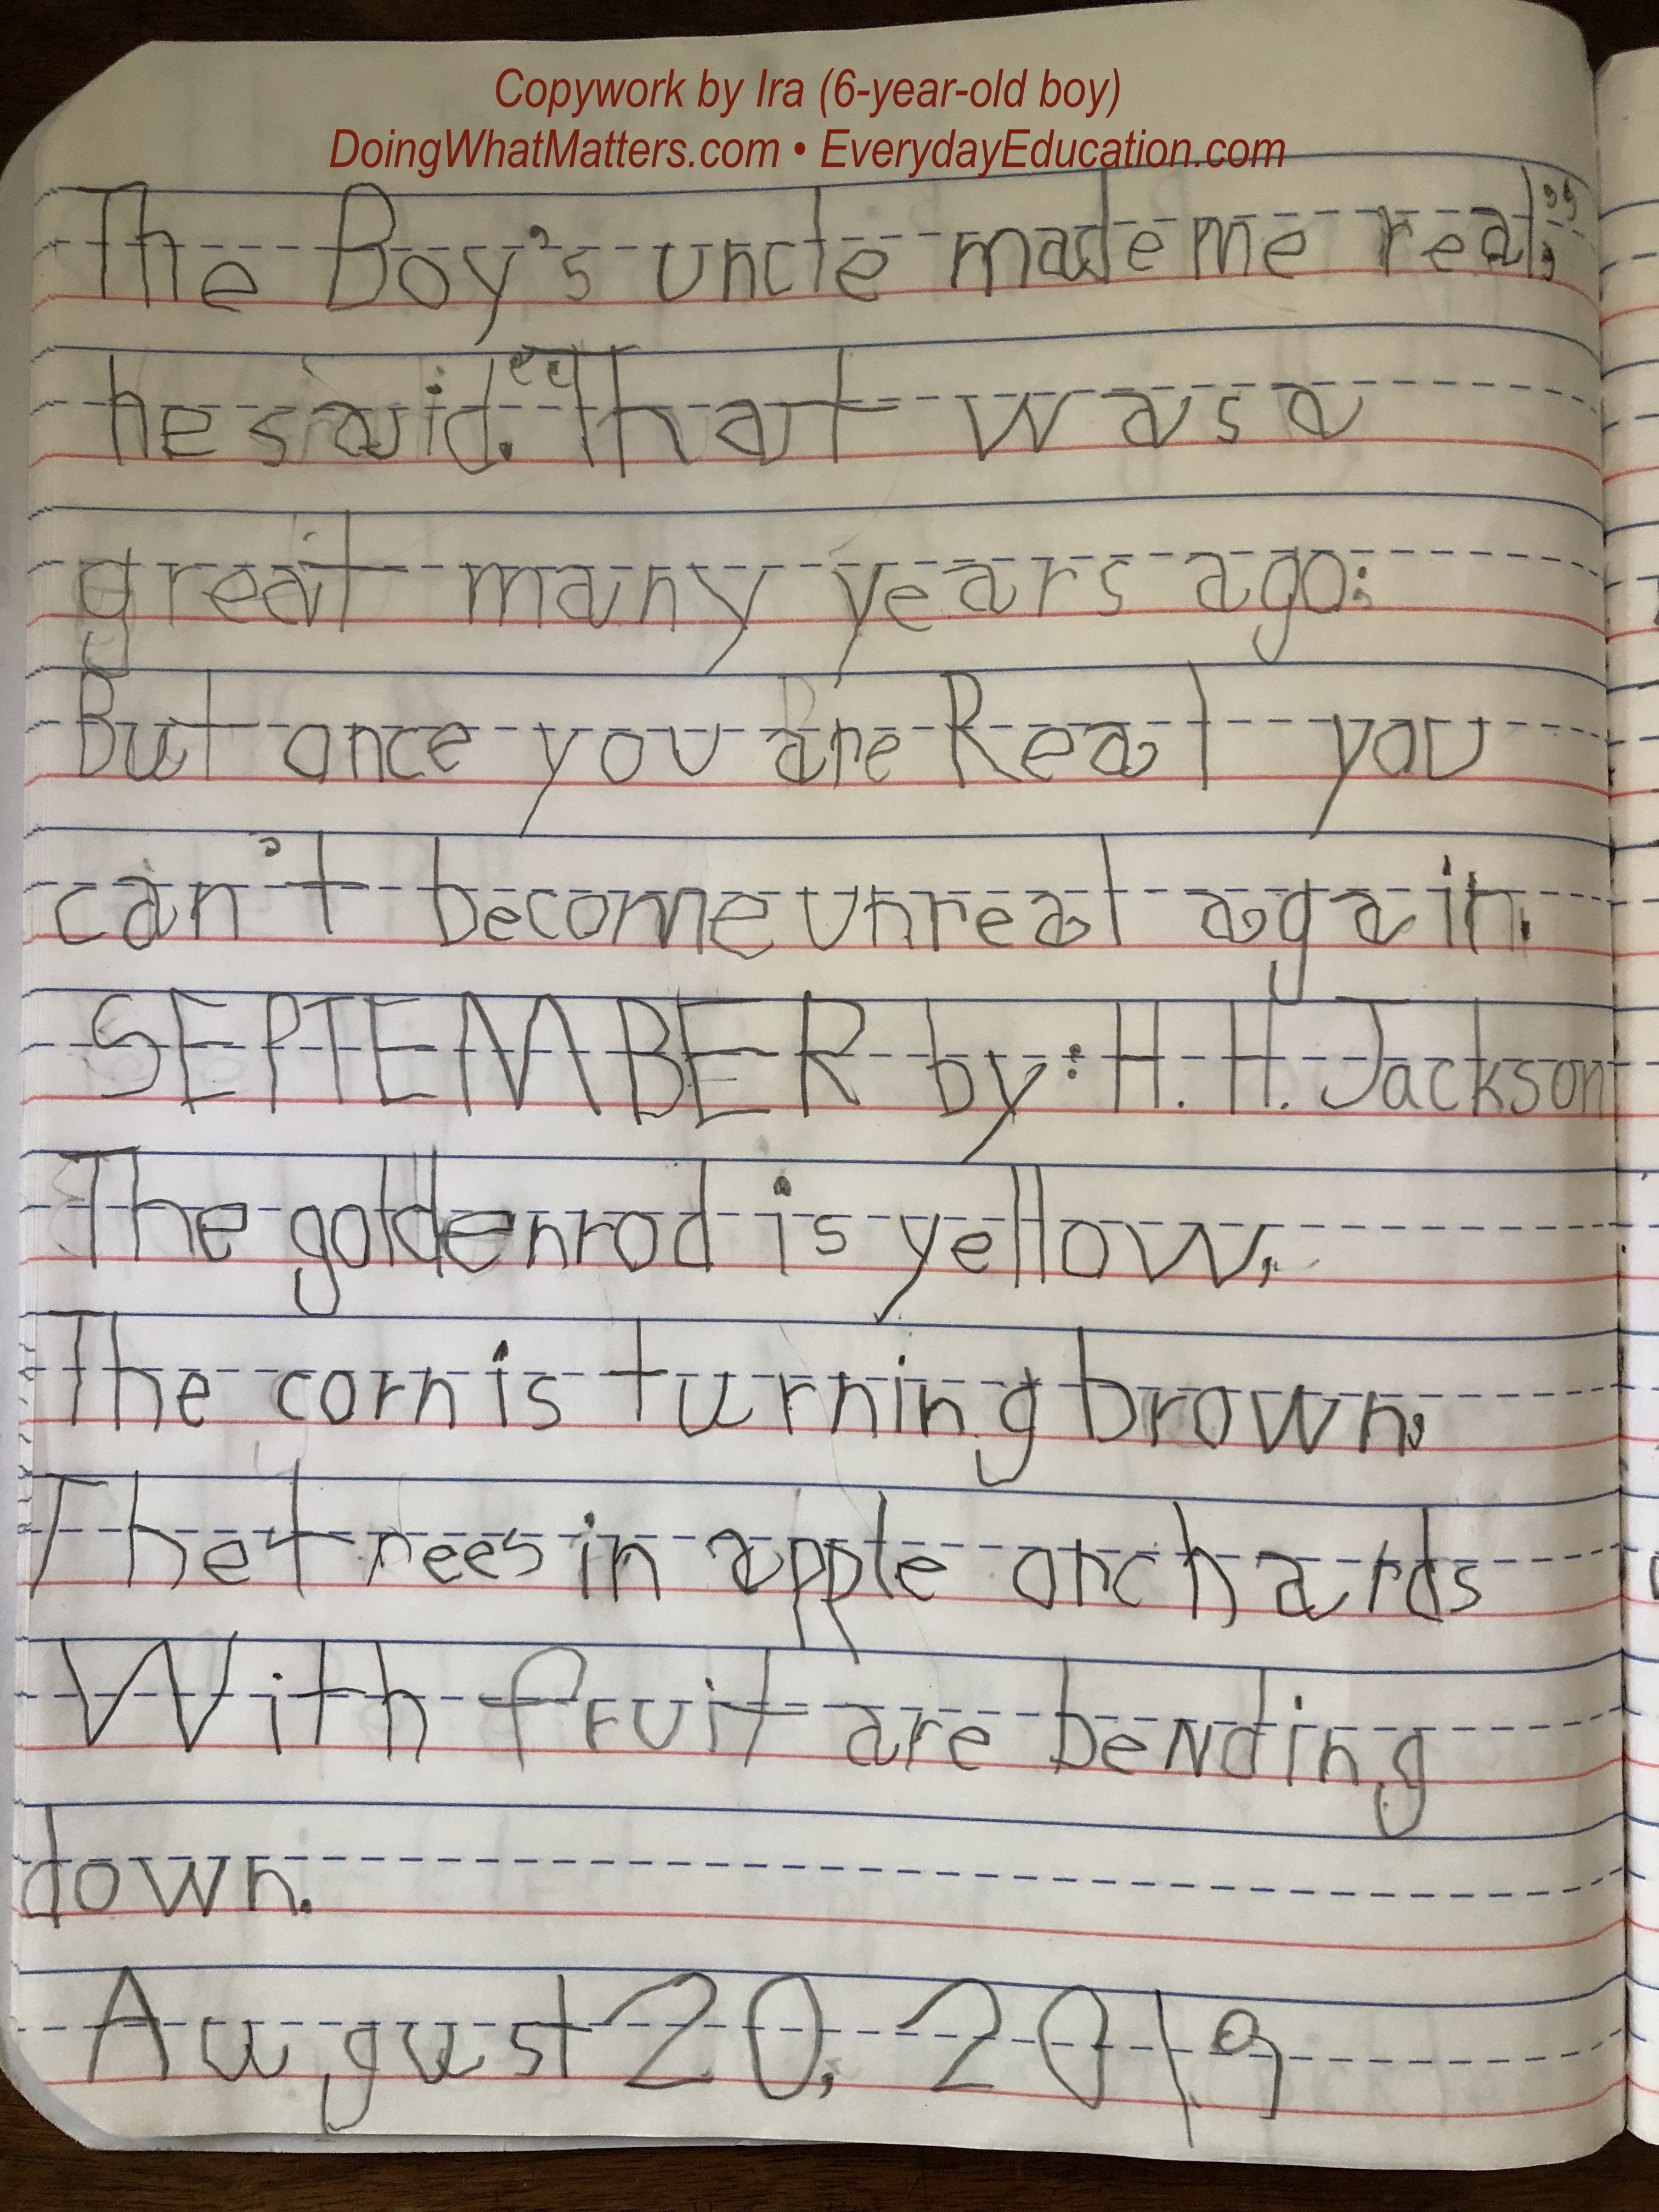 Copywork by Ira (6-year-old boy)
DoingWhatMatters.com • EverydayEducation.com
The Boy's uncle made me real,"
he said. "That was a
great many years ago;
But once you are Real you
can't become unreal again.
SEPTEMBER by: H. H. Jackson
The goldenrod is yellow,
The corn is turning brown,
The trees in apple orchards
With fruit are bending
down.
August 20, 2019